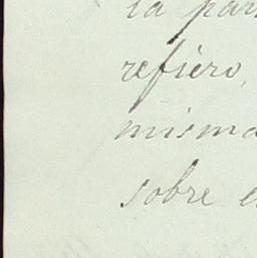 la par
refiero,
misma
sobre e